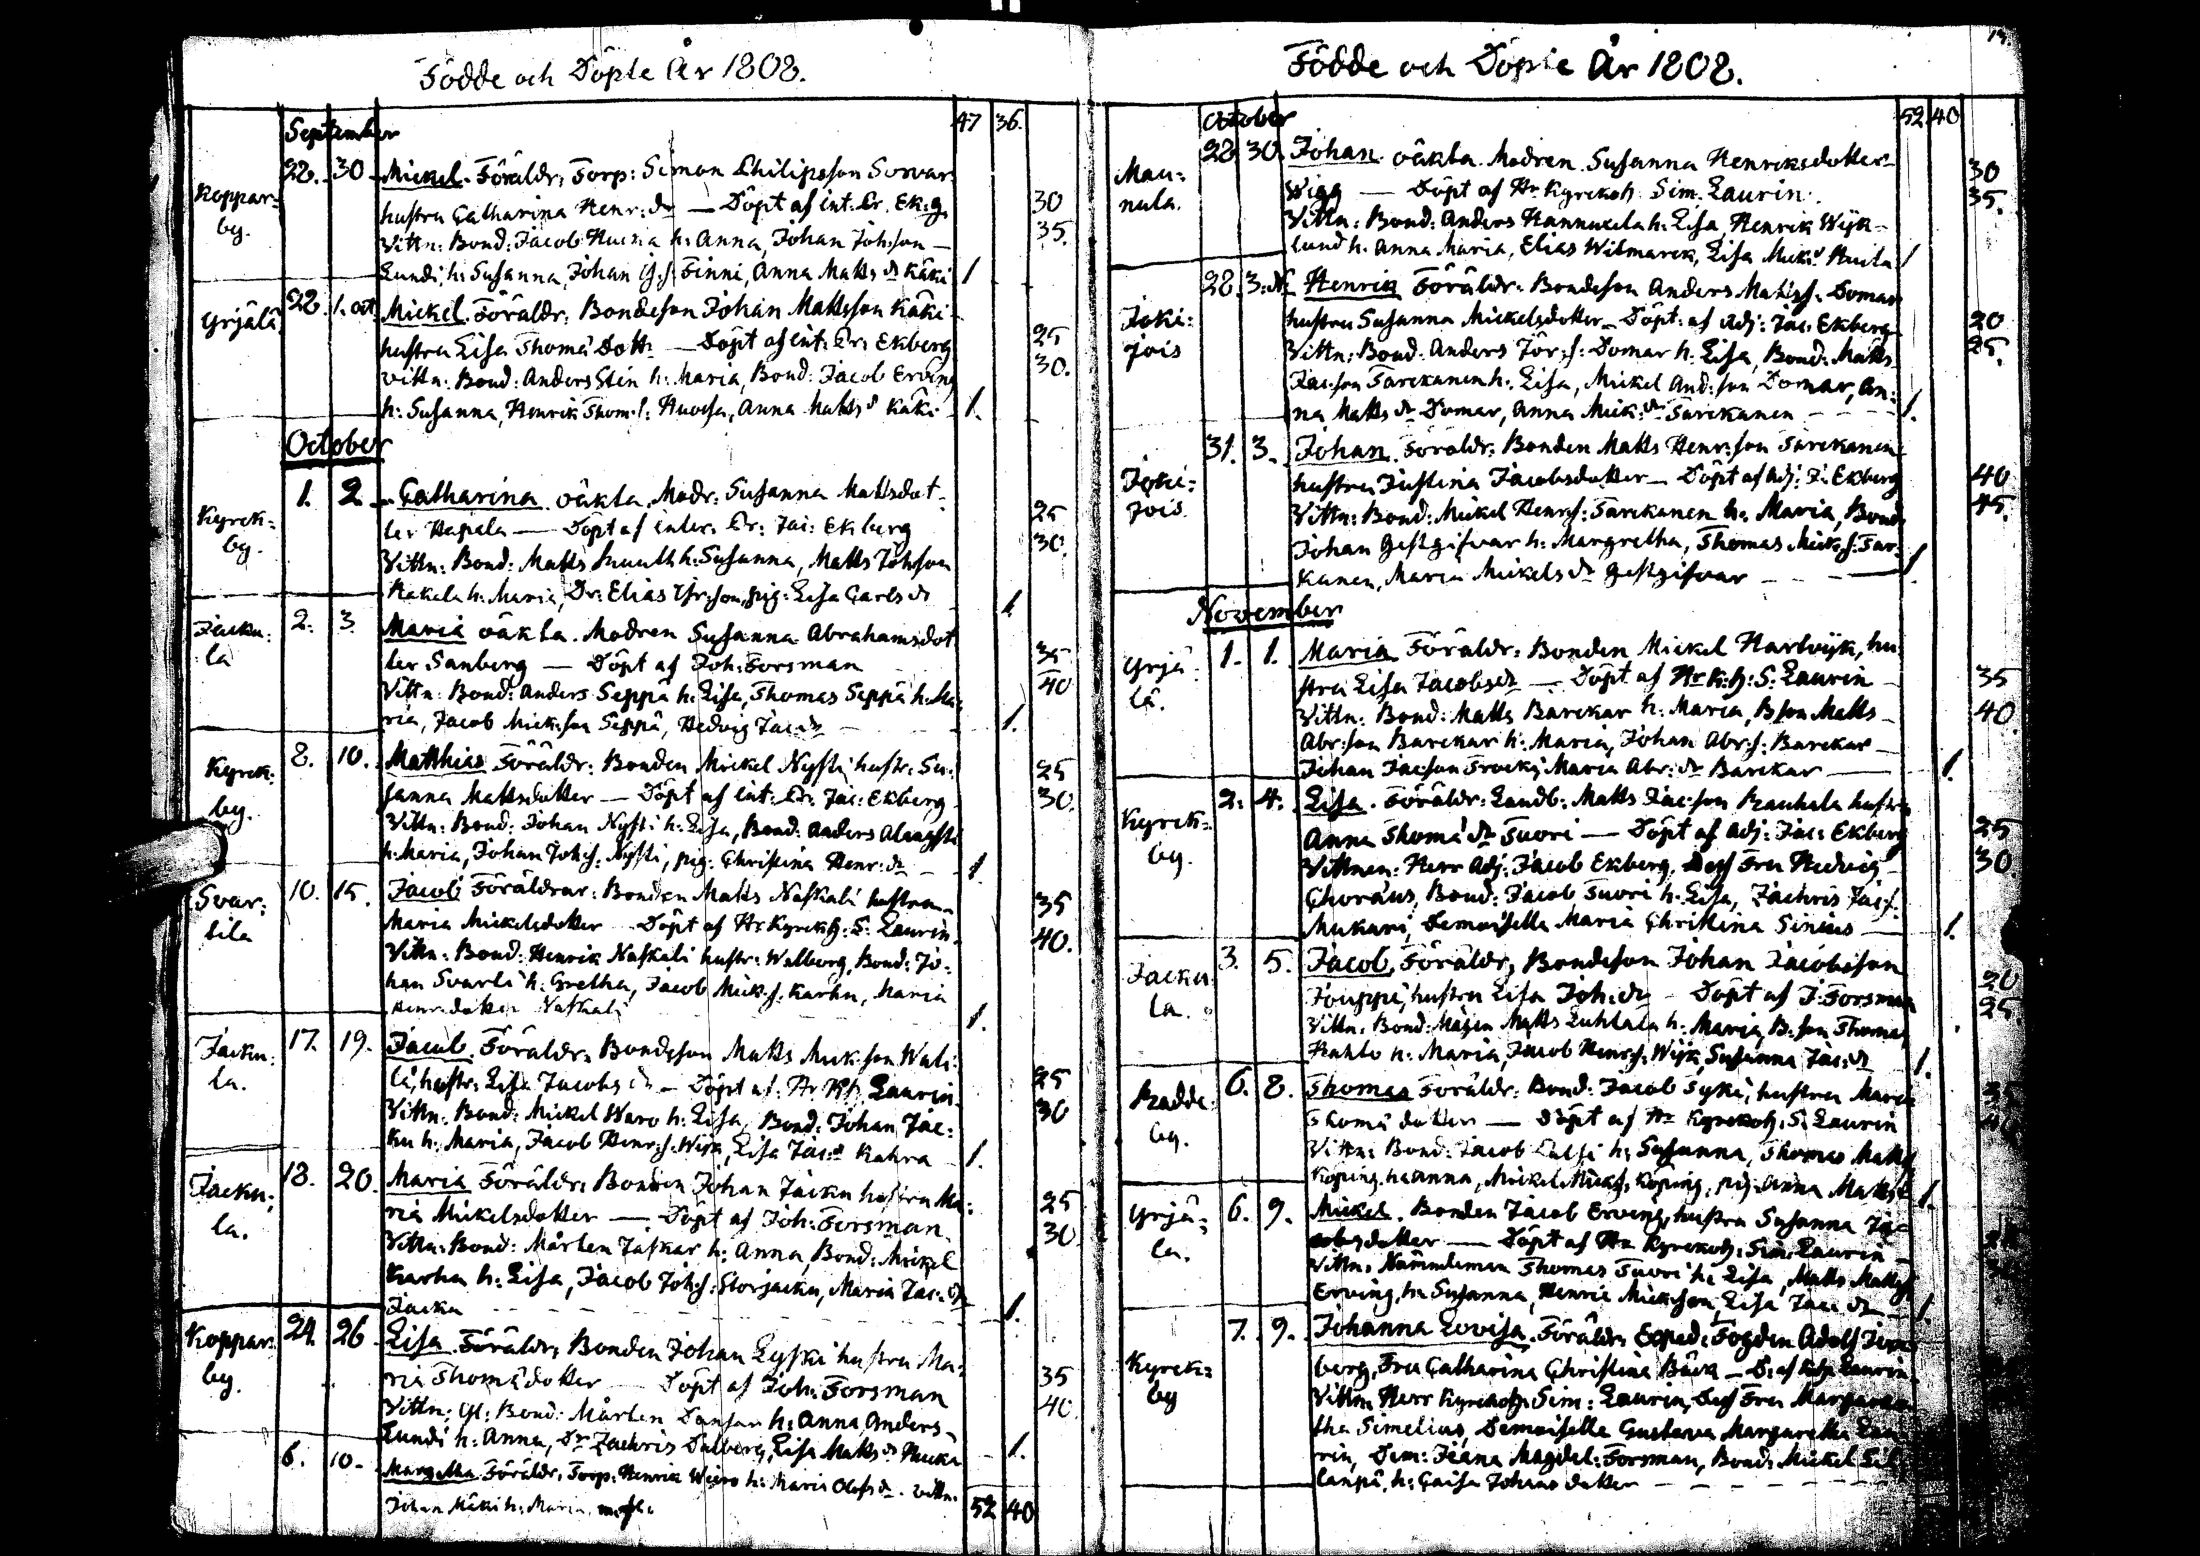 Födde och Döpte År 1808.
September
47 36.
Koppar-
by.
28. 30 Mickel. Föräldr: Torp: Simon Philipsson Sorvar
hustru Catharina Henr: dr — Döpt af int. Pr. Ek:g. 30
Vittn: Bond: Jacob h: Anna, Johan Joh:son 35.
Lundi h: Susanna, Johan Finni, Anna Matts dr Käki 1
Yrjälä
28 1. oct. Mickel. Föräldr: Bondeson Johan Mattsson Käki
hustru Lisa Thomä Dott: — Döpt af int: Pr: Ekberg 25
Vittn: Bond: Anders Stin h: Maria, Bond: Jacob Erving 30.
h: Susanna, Henrik Thom: s: Anna Matts d Käki 1.
October
Kyrck-
by.
1. 2 Catharina oäkta. Modr: Susanna Mattsdot-
ter Hapala — Döpt af inter. Pr: Jac: Ekberg 25
Vittn: Bond: Matts h: Susanna, Matts Joh:son 30.
Hakala h: Maria, Dr: Elias pig: Lisa Carls dr 1
Jacku:
la
2. 3. Maria oäkta. Modren Susanna Abrahamsdot
ter Sanberg — Döpt af Joh: Forsman 35
Vittn: Bond: Anders Seppä h: Lisa, Thomas Seppä h: Ma- 40
ria, Jacob Mick:son Seppä, Hedvig Jac: dr 1.
Kyrck:
by.
8. 10. Matthias Föräldr: Bonden Mickel Nysti hustr: Su-
sanna Mattsdotter — Döpt af int: Pr: Jac: Ekberg 25
Vittn: Bond: Johan Nysti h: Lisa, Bond: Anders 30.
h: Maria, Johan Joh:s: Nysti, pig: Christina Henr: dr 1.
Svar:
tila
10. 15. Jacob Föräldrar: Bonden Matts Naskali hustru
Maria Mickelsdotter Döpt af Hr Kyrckh: S: Laurin. 35
Vittn: Bond: Henrik Naskali hustr: Walborg, Bond: Jo- 40.
han Svarli h: Gretha, Jacob Mick:s: Karhu, Maria
Henr:dotter Naskali 1.
Jacku:
la.
17. 19. Jacob. Föräldr: Bondeson Matts Mick:son Wali-
la, hustr: Lisa Jacobs dr — Döpt af Hr Kh: Laurin. 25
Vittn: Bond: Mickel Waro h: Lisa, Bond: Johan Jac- 30
ku h: Maria, Jacob Henr:s: Wijk, Lisa Jac: d Kahra 1.
Jacku:
la.
18. 20. Maria Föräldr: Bonden Johan Jacku hustru Ma-
ria Mickelsdotter — Döpt af Joh: Forsman. 25
Vittn: Bond: Mårten Jaskar h: Anna, Bond: Mickel 30
Karhu h: Lisa, Jacob Joh:s: Storjacku, Maria Jac: dr
Jacku 1.
Koppar-
by.
24. 26 Lisa Föräldr: Bonden Johan Lyski hustru Ma-
ria Thomä dotter — Döpt af Joh: Forsman 35
Vittn: Gl: Bond: Mårten Dansar h: Anna, Anders 40
Lundi h: Anna, Dr Zachris Dalberg, Lisa Matts dr 1.
6. 10. Margetha Föräldr: Torp: Henrik h: Maria Olofs dr. Vittn.
Johan Mäki h: Maria m. fl.
52 40
Födde och Döpte År 1808.
October
52. 40
Man-
nula.
28. 30. Johan oäkta. Modren Susanna Henriksdotter 30
Wigg — Döpt af Hr Kyrckoh: Sim: Laurin. 35.
Vittn: Bond: Anders Hannuxela h: Lisa, Henrik Wijk-
lund h: Anna Maria, Elias Wilmarck, Lisa Mick: d 1
Joki-
jois
28. 3. N. Henrik Föräldr: Bondeson Anders Matts:s: Domar
hustru Susanna Mickelsdotter — Döpt: af Adj: Jac: Ekberg 20
Vittn: Bond: Anders Jör:s: Domar h: Lisa, Bond: Matts 25.
Jac:son Tarckanen h: Lisa, Mickel And:son Domar, An-
na Matts dr Domar, Anna Mick: dr Tarckanen 1.
Joki-
jois
31. 3. Johan Föräldr: Bonden Matts Henr:son Tarckanen
hustru Justina Jacobsdotter — Döpt af Adj: J: Ekberg 40
Vittn: Bond: Mickel Henr:s: Tarckanen h: Maria, Bond: 45.
Johan Gestgifvar h: Margretha, Thomas Mick:s: Tar-
kanen, Maria Mickels dr Gestgifvar 1.
November
Yrjä-
lä.
1. 1. Maria Föräldr: Bonden Mickel Hartvijk, hu-
stru Lisa Jacobs dr — Döpt af Hr K:h: S: Laurin 35
Vittn: Bond: Matts Barckar h: Maria, B:son Matts 40.
Abr:son Barckar h: Maria, Johan Abr:s: Barckar
Johan Jac:son Maria Abr: dr Barckar 1.
Kyrck-
by.
2. 4. Lisa. Föräldr: Landb: Matts Jac:son Rauhala hustru
Anna Thomä dr Tuori — Döpt af Adj: Jac: Ekberg 25
Vittnen: Herr Adj: Jacob Ekberg, Dess Fru Hedvig 30
Choræus, Bond: Jacob Tuori h: Lisa, Zachris Jac:s:
Mukari, Demoiselle Maria Christina Sinius 1.
Jacku
la.
3. 5. Jacob, Föräldr: Bondeson Johan Jacobsson
Jouppi, hustru Lisa Joh: dr — Döpt af J: Forsman 20
Vittn: Bond: Mågen Matts Luhtala h: Maria, B:son Thomas 25.
h: Maria, Jacob Henr:s: Wijk, Susanna Jac: dr 1.
Radde
by.
6. 8. Thomas Föräldr: Bond: Jacob hustru Maria
Thomä dotter — Döpt af Hr Kyrckoh: S: Laurin
Vittn: Bond: Jacob h: Susanna, Thomas Matts:s
Köping h: Anna, Mickel Mick:s: Köping, pig: Anna Matts d 1.
Yrjä-
la.
6. 9. Mickel. Bonden Jacob Erving, hustru Susanna Ja-
cobsdotter — Döpt af Hr Kyrckoh: Sim: Laurin
Vittn: Nämndeman Thomas Tuori h: Lisa, Matts Matts:s
Erving h: Susanna, Henric Mick:son, Lisa Jac: dr 1.
Kyrck-
by
7. 9. Johanna Lovisa. Föräldr: Exped: Fogden Adolf
berg, Fru Catharina Christina Bäck — D: af Kh: Laurin.
Vittn: Herr Kyrckoh: Sim: Laurin, Dess Fru Margare-
tha Simelius, Demoiselle Gustava Margaretha Lau-
rin, Dem: Jeana Magdel: Forsman, Bond: Mickel
h: Caisa Johans dotter